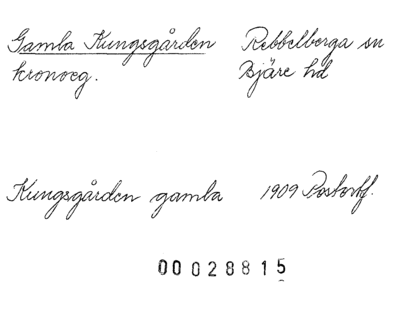 Gamla Kungsgården Rebbelberga sn
kronoeg. Bjäre hd
Kungsgården gamla 1909 Postortf.
00028815